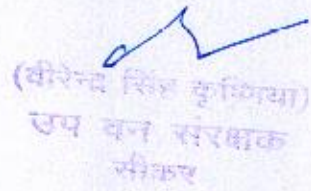 (वीरेन्द्र सिंह कृष्णिया)
उप वन संरक्षक
सीकर